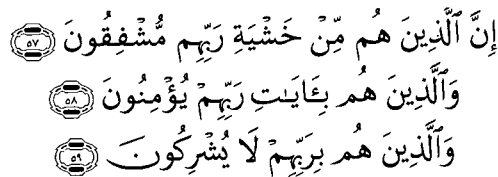 إِنَّ ٱلَّذِينَ هُم مِّنْ خَشْيَةِ رَبِّهِم مُّشْفِقُونَ ٥٧
وَٱلَّذِينَ هُم بِـَٔايَـٰتِ رَبِّهِمْ يُؤْمِنُونَ ٥٨
وَٱلَّذِينَ هُم بِرَبِّهِمْ لَا يُشْرِكُونَ ٥٩